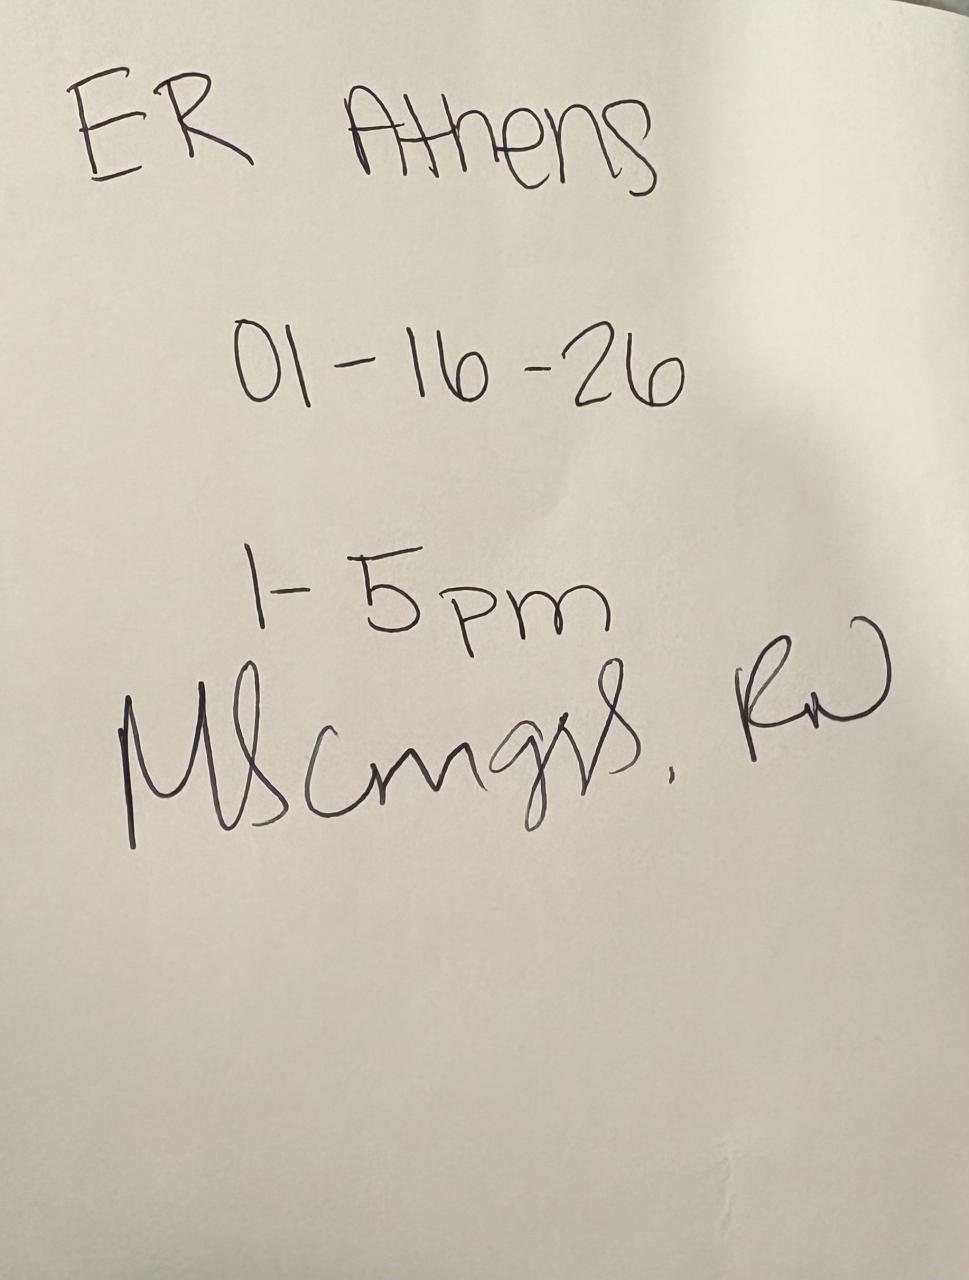 ER Athens
01-16-26
1-5pm
RN